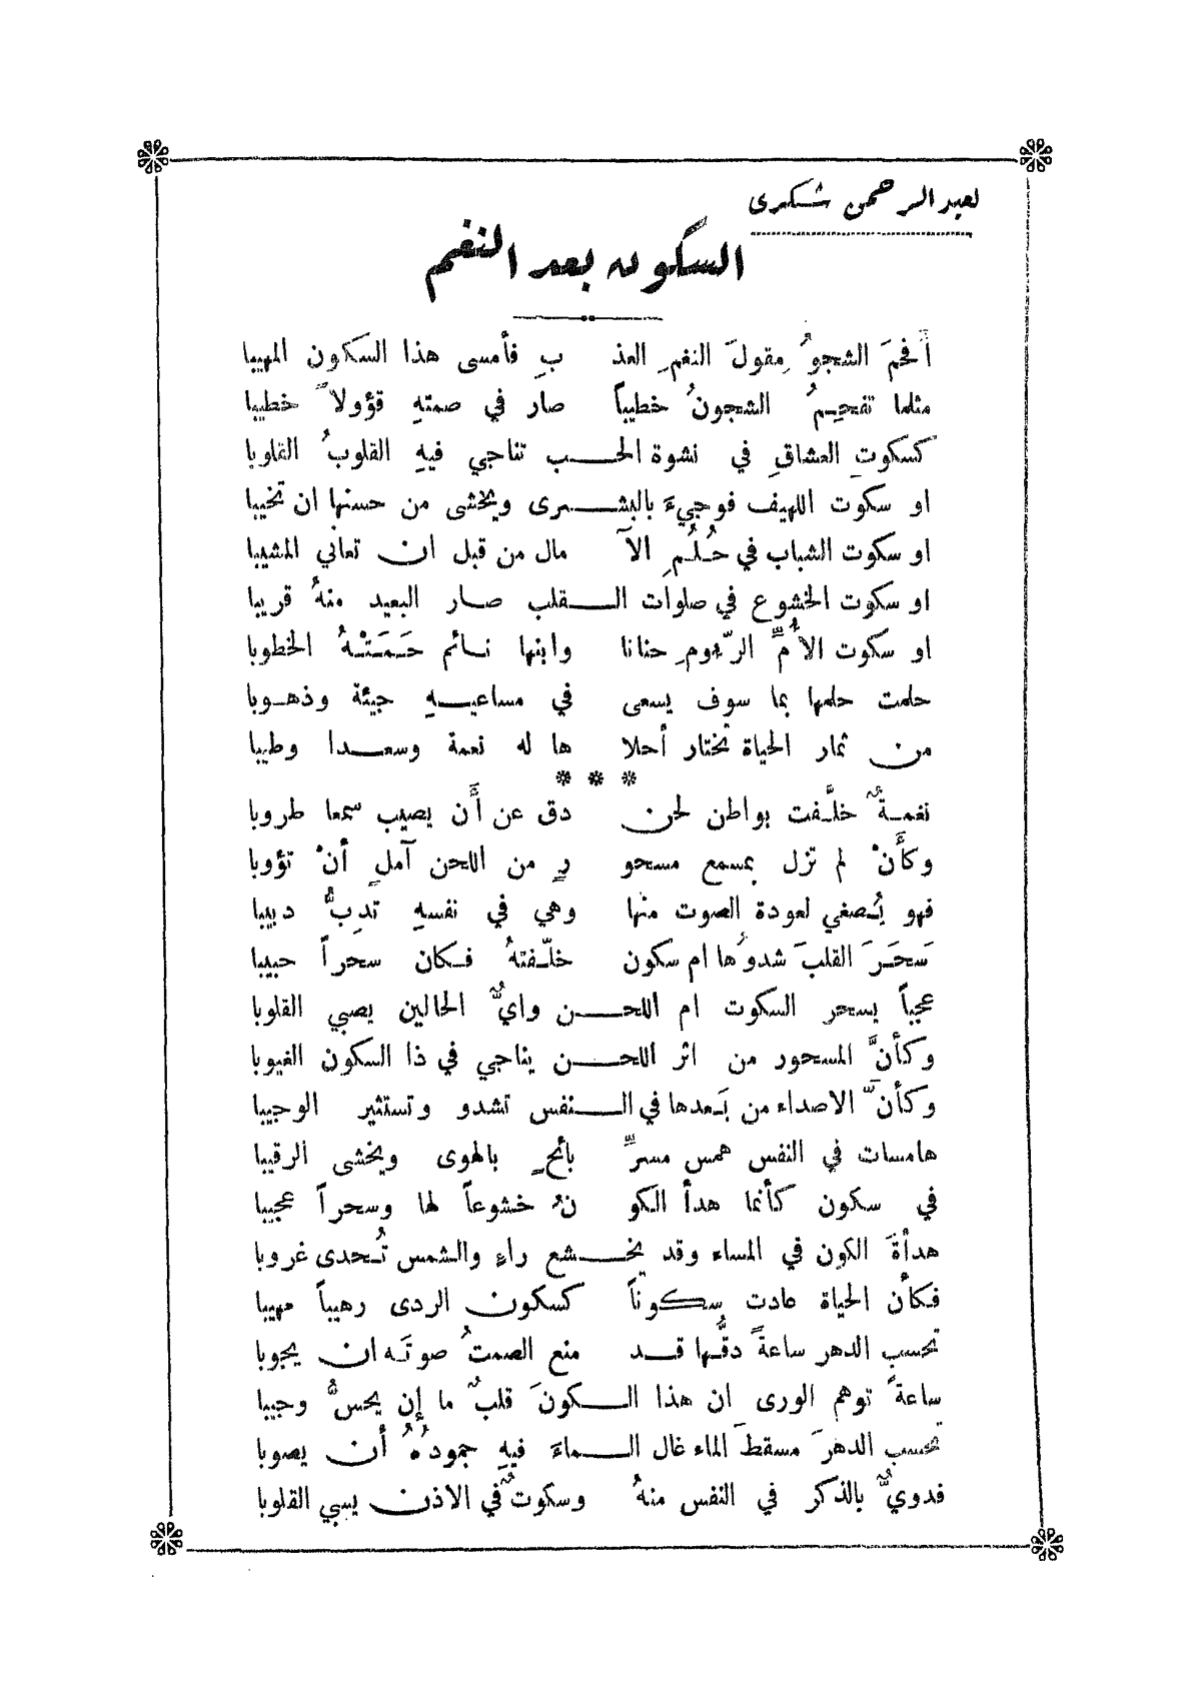 لعبد الرحمن شكرى
السكون بعد النغم
أَفحمَ الشجوُ مِقولَ النغمِ العذ بِ فأمسى هذا السكون المهيبا
مثلما تفحِمُ الشجونُ خطيباً صار في صمتهِ قؤولاً خطيبا
كسكوتِ العشاقِ في نشوة الحب تناجي فيهِ القلوبُ القلوبا
او سكوت اللهيف فوجيءَ بالبشرى ويخشى من حسنها ان تخيبا
او سكوت الشباب في حُلُمِ الآ مال من قبل ان تعاني المشيبا
او سكوت الخشوع في صلوات القلب صار البعيد منهُ قريبا
او سكوت الأُمِّ الرّؤومِ حنانا وابنها نائم حَمَتْهُ الخطوبا
حلمت حلمها بما سوف يسعى في مساعيهِ جيئة وذهوبا
من ثمار الحياة تختار أحلا ها له نعمة وسعدا وطيبا
* * *
نغمةٌ خلَّفت بواطن لحن دق عن أَن يصيب سمعا طروبا
وكأَنْ لم تزل بمسمع مسحو رٍ من اللحن آملٍ أنْ تؤوبا
فهو يُصغي لعودة الصوت منها وهي في نفسهِ تدِبُّ دبيبا
سَحَرَ القلبَ شدوُها ام سكون خلّفتهُ فكان سحراً حبيبا
عجباً يسحر السكوت ام اللحن وايُّ الحالين يصبي القلوبا
وكأنَّ المسحور من اثر اللحن يناجي في ذا السكون الغيوبا
وكأنَّ الاصداء من بَعدها في النفس تشدو وتستثير الوجيبا
هامسات في النفس همس مسرٍّ بأئحٍ بالهوى ويخشى الرقيبا
في سكون كأنما هدأ الكو نُ خشوعاً لها وسحراً عجيبا
هدأةَ الكون في المساء وقد يخشع راءٍ والشمس تُحدى غروبا
فكأن الحياة عادت سكوناً كسكون الردى رهيباً مهيبا
تحسب الدهر ساعةً دقُّها قد منع الصمتُ صوتَه ان يجوبا
ساعةً توهم الورى ان هذا السكونَ قلبٌ ما إن يحسُّ وجيبا
تحسب الدهرَ مسقطَ الماء غال الماءَ فيهِ جمودُهُ أن يصوبا
فدويٌّ بالذكر في النفس منهُ وسكوتٌ في الاذن يسبي القلوبا